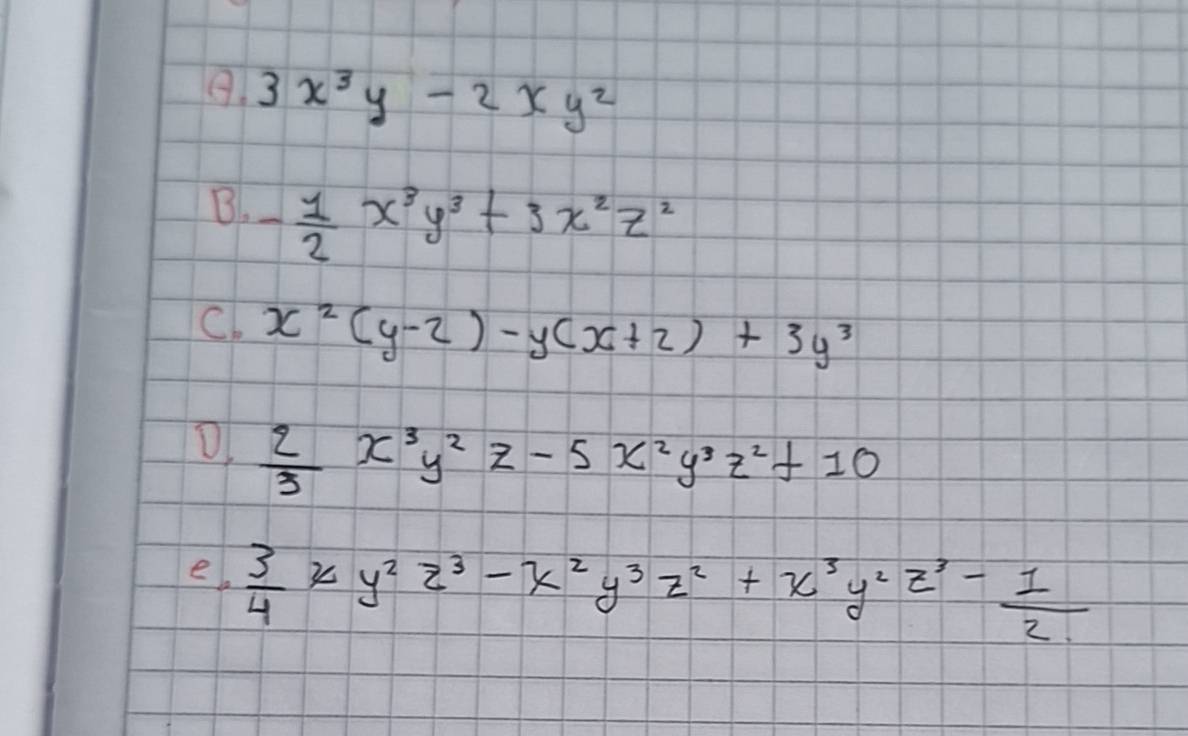 A. 3x³y - 2xy²
B. -1/2 x³y³ + 3x²z²
C. x²(y-2) - y(x+2) + 3y³
D. 2/3 x³y²z - 5x²y³z² + 10
e. 3/4 xy²z³ - x²y³z² + x³y²z³ - 1/2